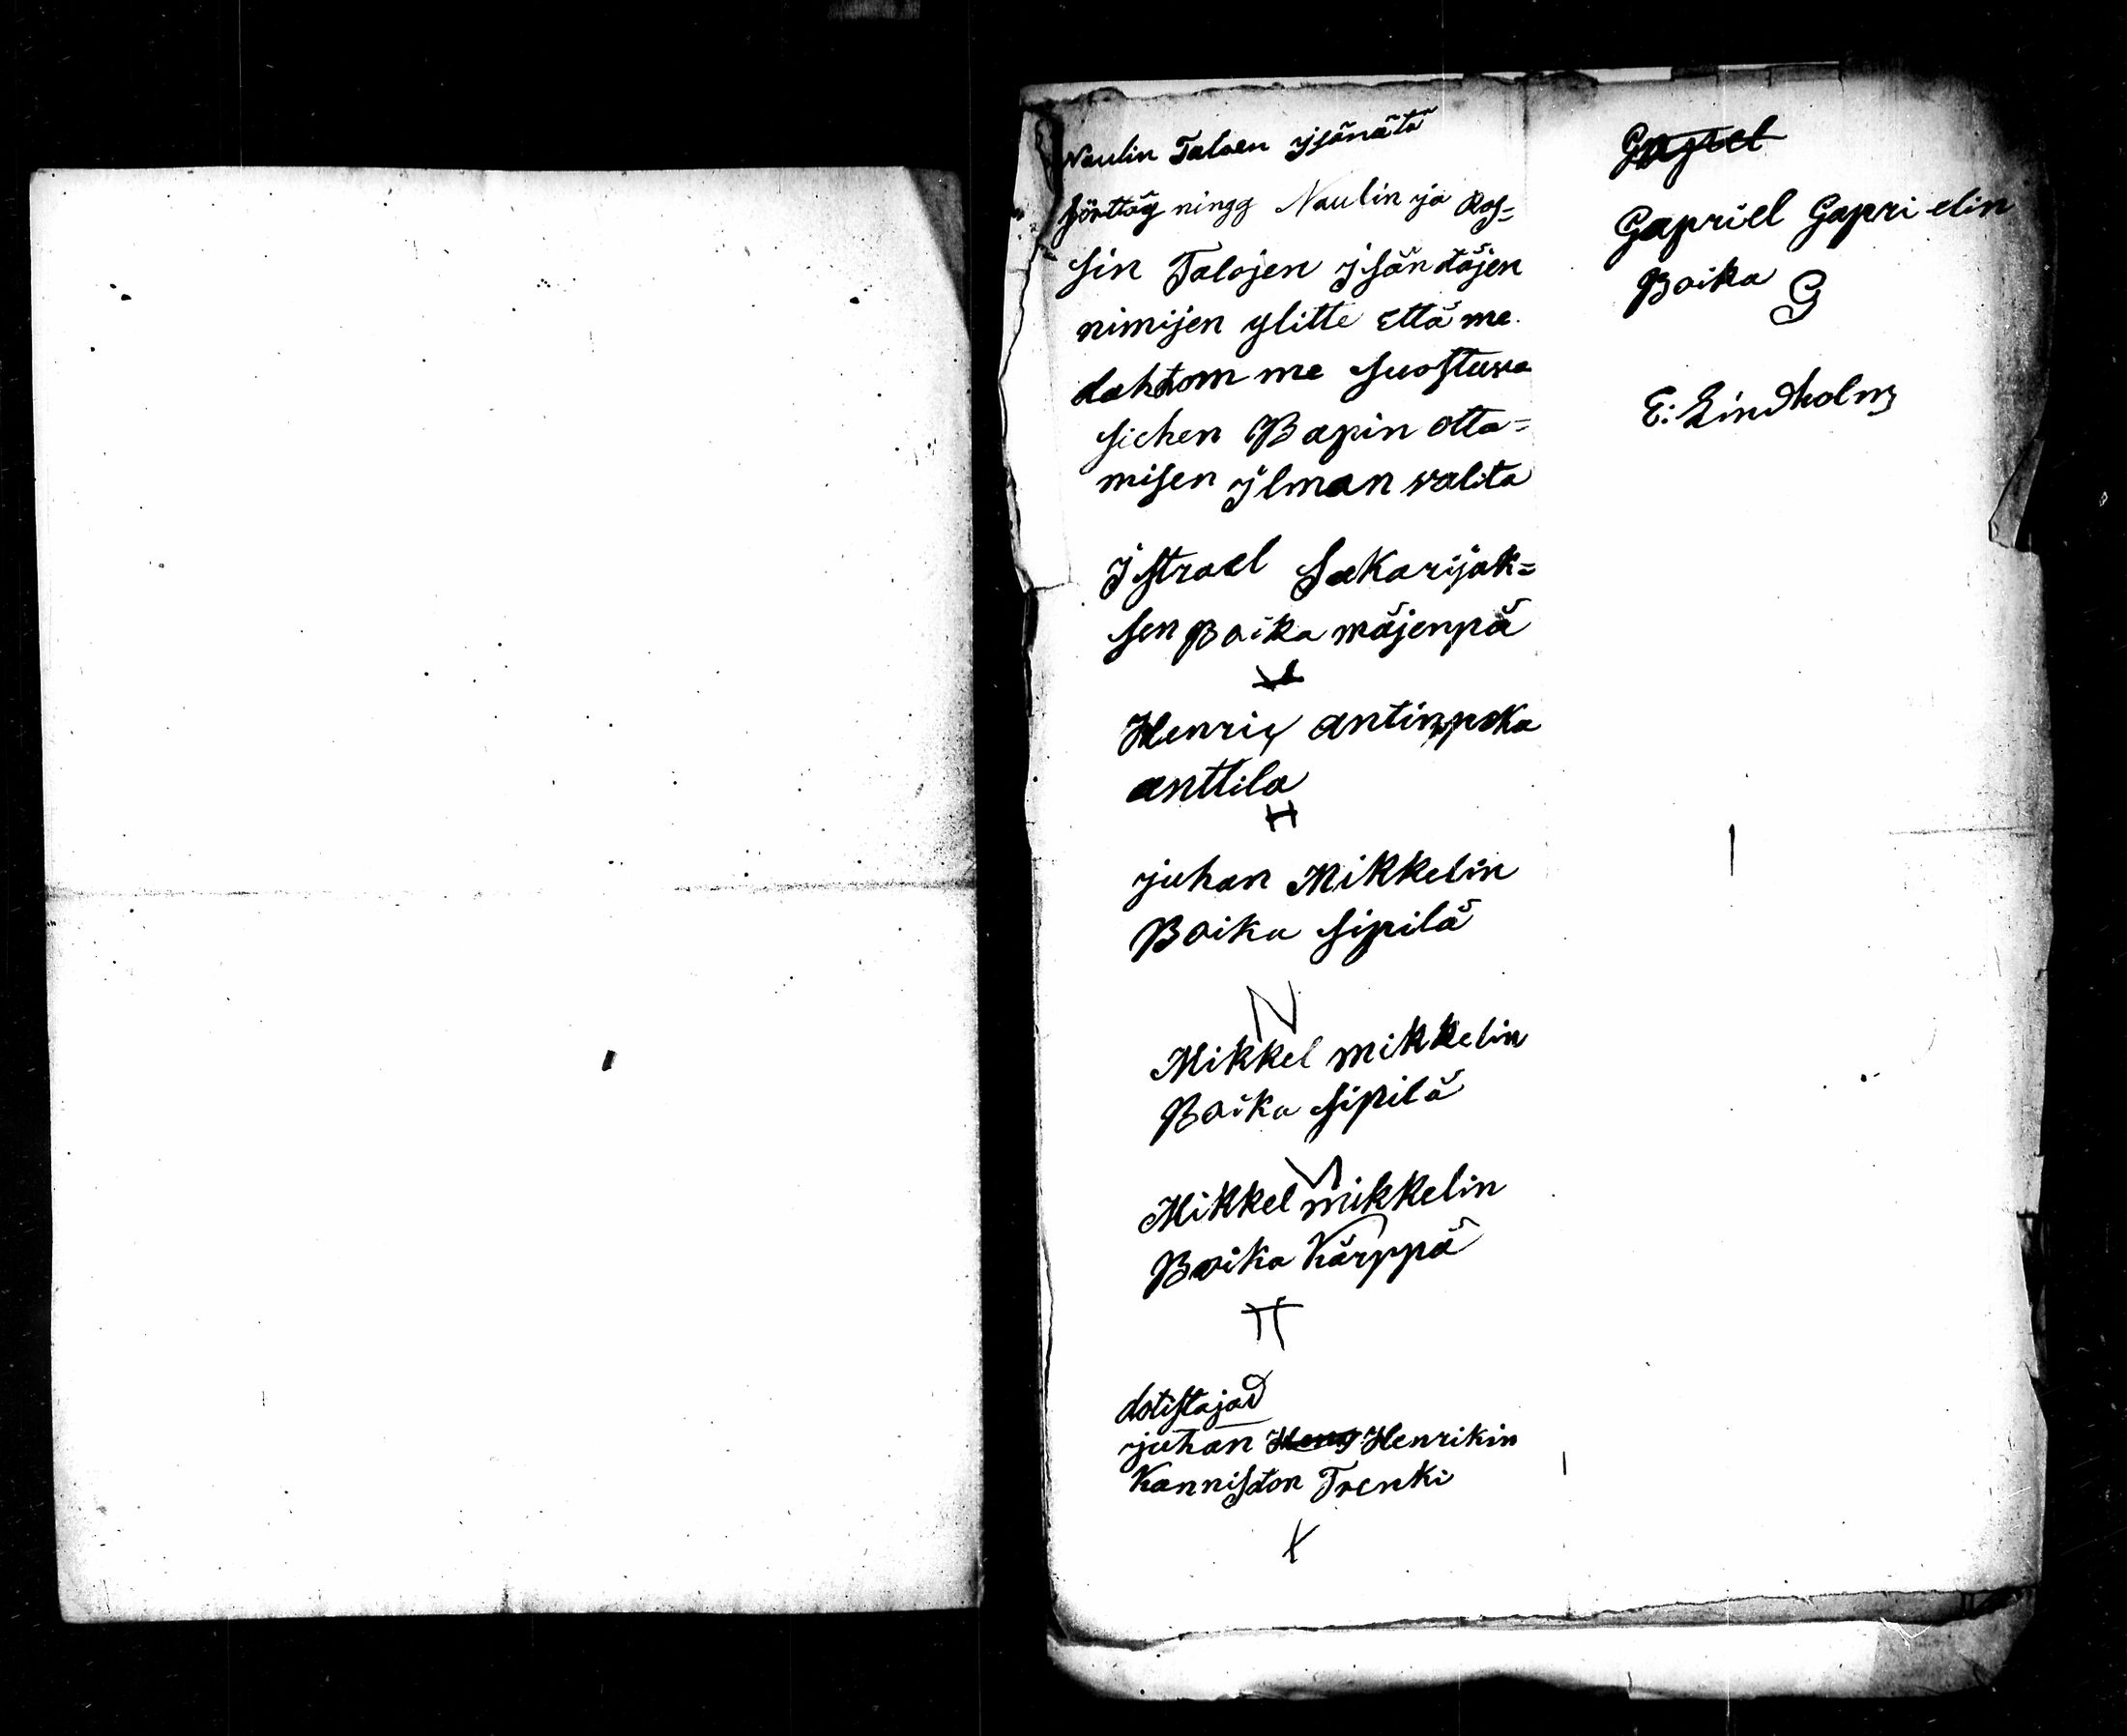 Naulin Taloen ysänätä
ningg Naulin ja Ros=
sin Talojen ysändäjen
nimijen ylitte Että me
dahdom me suostuwa
siehen Bapin otta=
misen ylman walita
ystrael Sakarijak=
sen Boika mäjenpä
Henrig antinpoka
anttila
H
juhan Mikkelin
Boika sipilä
N
Mikkel mikkelin
Boika sipilä
Mikkel mikkelin
Boika Kärppä
dotistajad
juhan Henrikin
Kanniston Trenki
X
Gapriel Gapri elin
Boika G
E: Lindholm